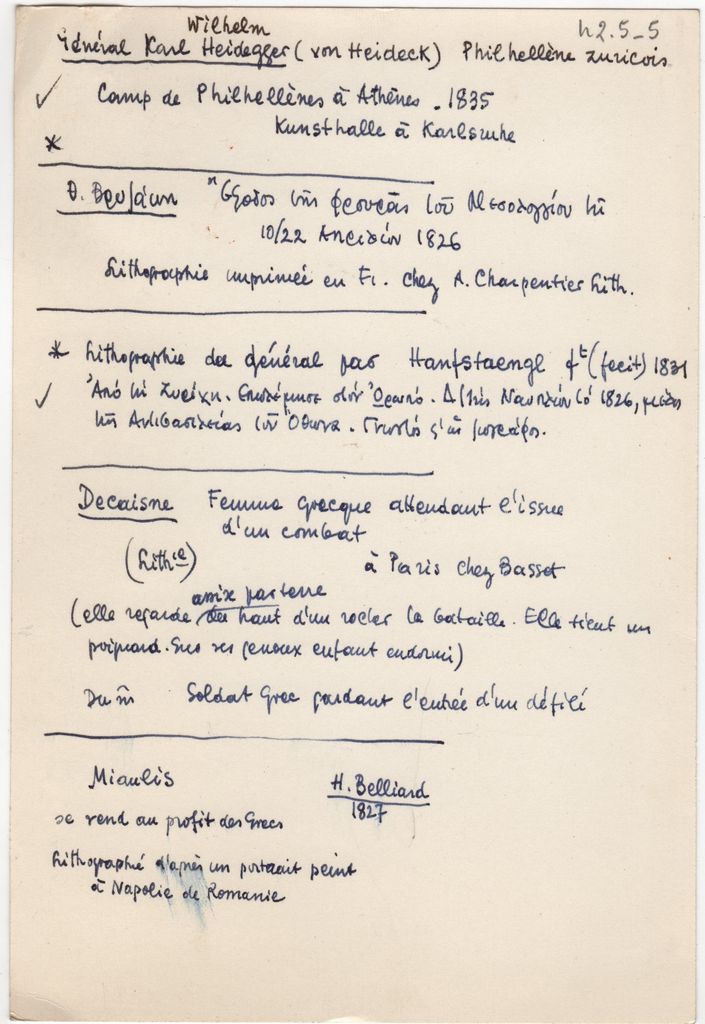 h2.5_5
Wilhelm
Général Karl Heidegger (von Heideck) Philhellène zuricois
✓ Camp de Philhellènes à Athènes . 1835
Kunsthalle à Karlsruhe
*
Θ. Βρυζάκη Ἔξοδος τῆς φρουρᾶς τοῦ Μεσολογγίου τῆ
10/22 Απριλίου 1826
Lithographie imprimée en Fr. chez A. Charpentier Lith.
* Lithographie du général par Hanfstaengl ft (fecit) 1831
✓ Ἀπό τή Ζυρίχη. στόν Ὠρωπό. Δ/τής Ναυπλίου τό 1826, μέλος
τῆς Αντιβασιλείας τοῦ Ὄθωνα. Γνωστός ζωγράφος.
Decaisne Femme grecque attendant l'issue
d'un combat
(Lithie) à Paris chez Basset
assise par terre
(elle regarde du haut d'un rocher la bataille. Elle tient un
poignard. Sur ses genoux enfant endormi)
Du m̄ Soldat Grec gardant l'entrée d'un défilé
Miaulis H. Belliard
1827
se vend au profit des Grecs
Lithographié d'après un portrait peint
à Napolie de Romanie